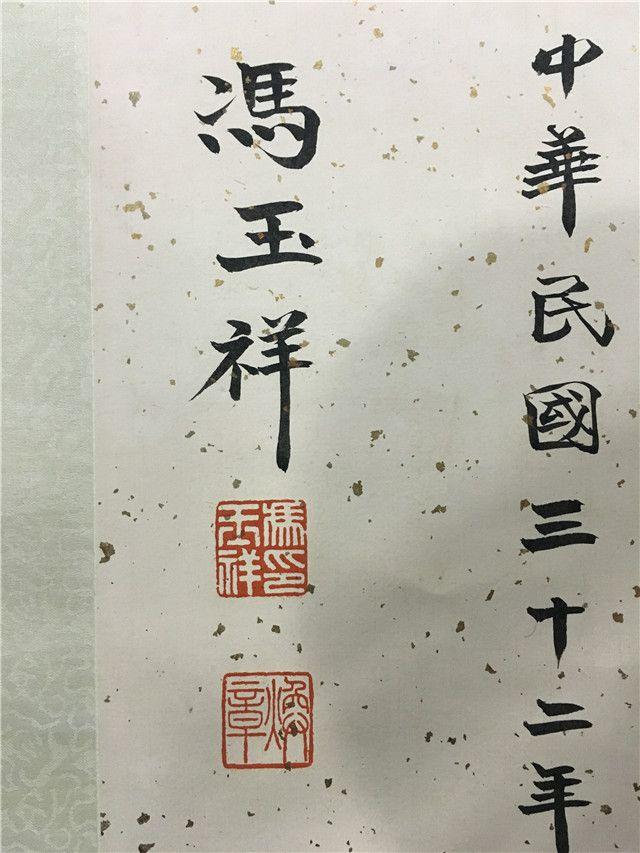 中華民國三十二年
馮玉祥
馮玉祥印
煥章